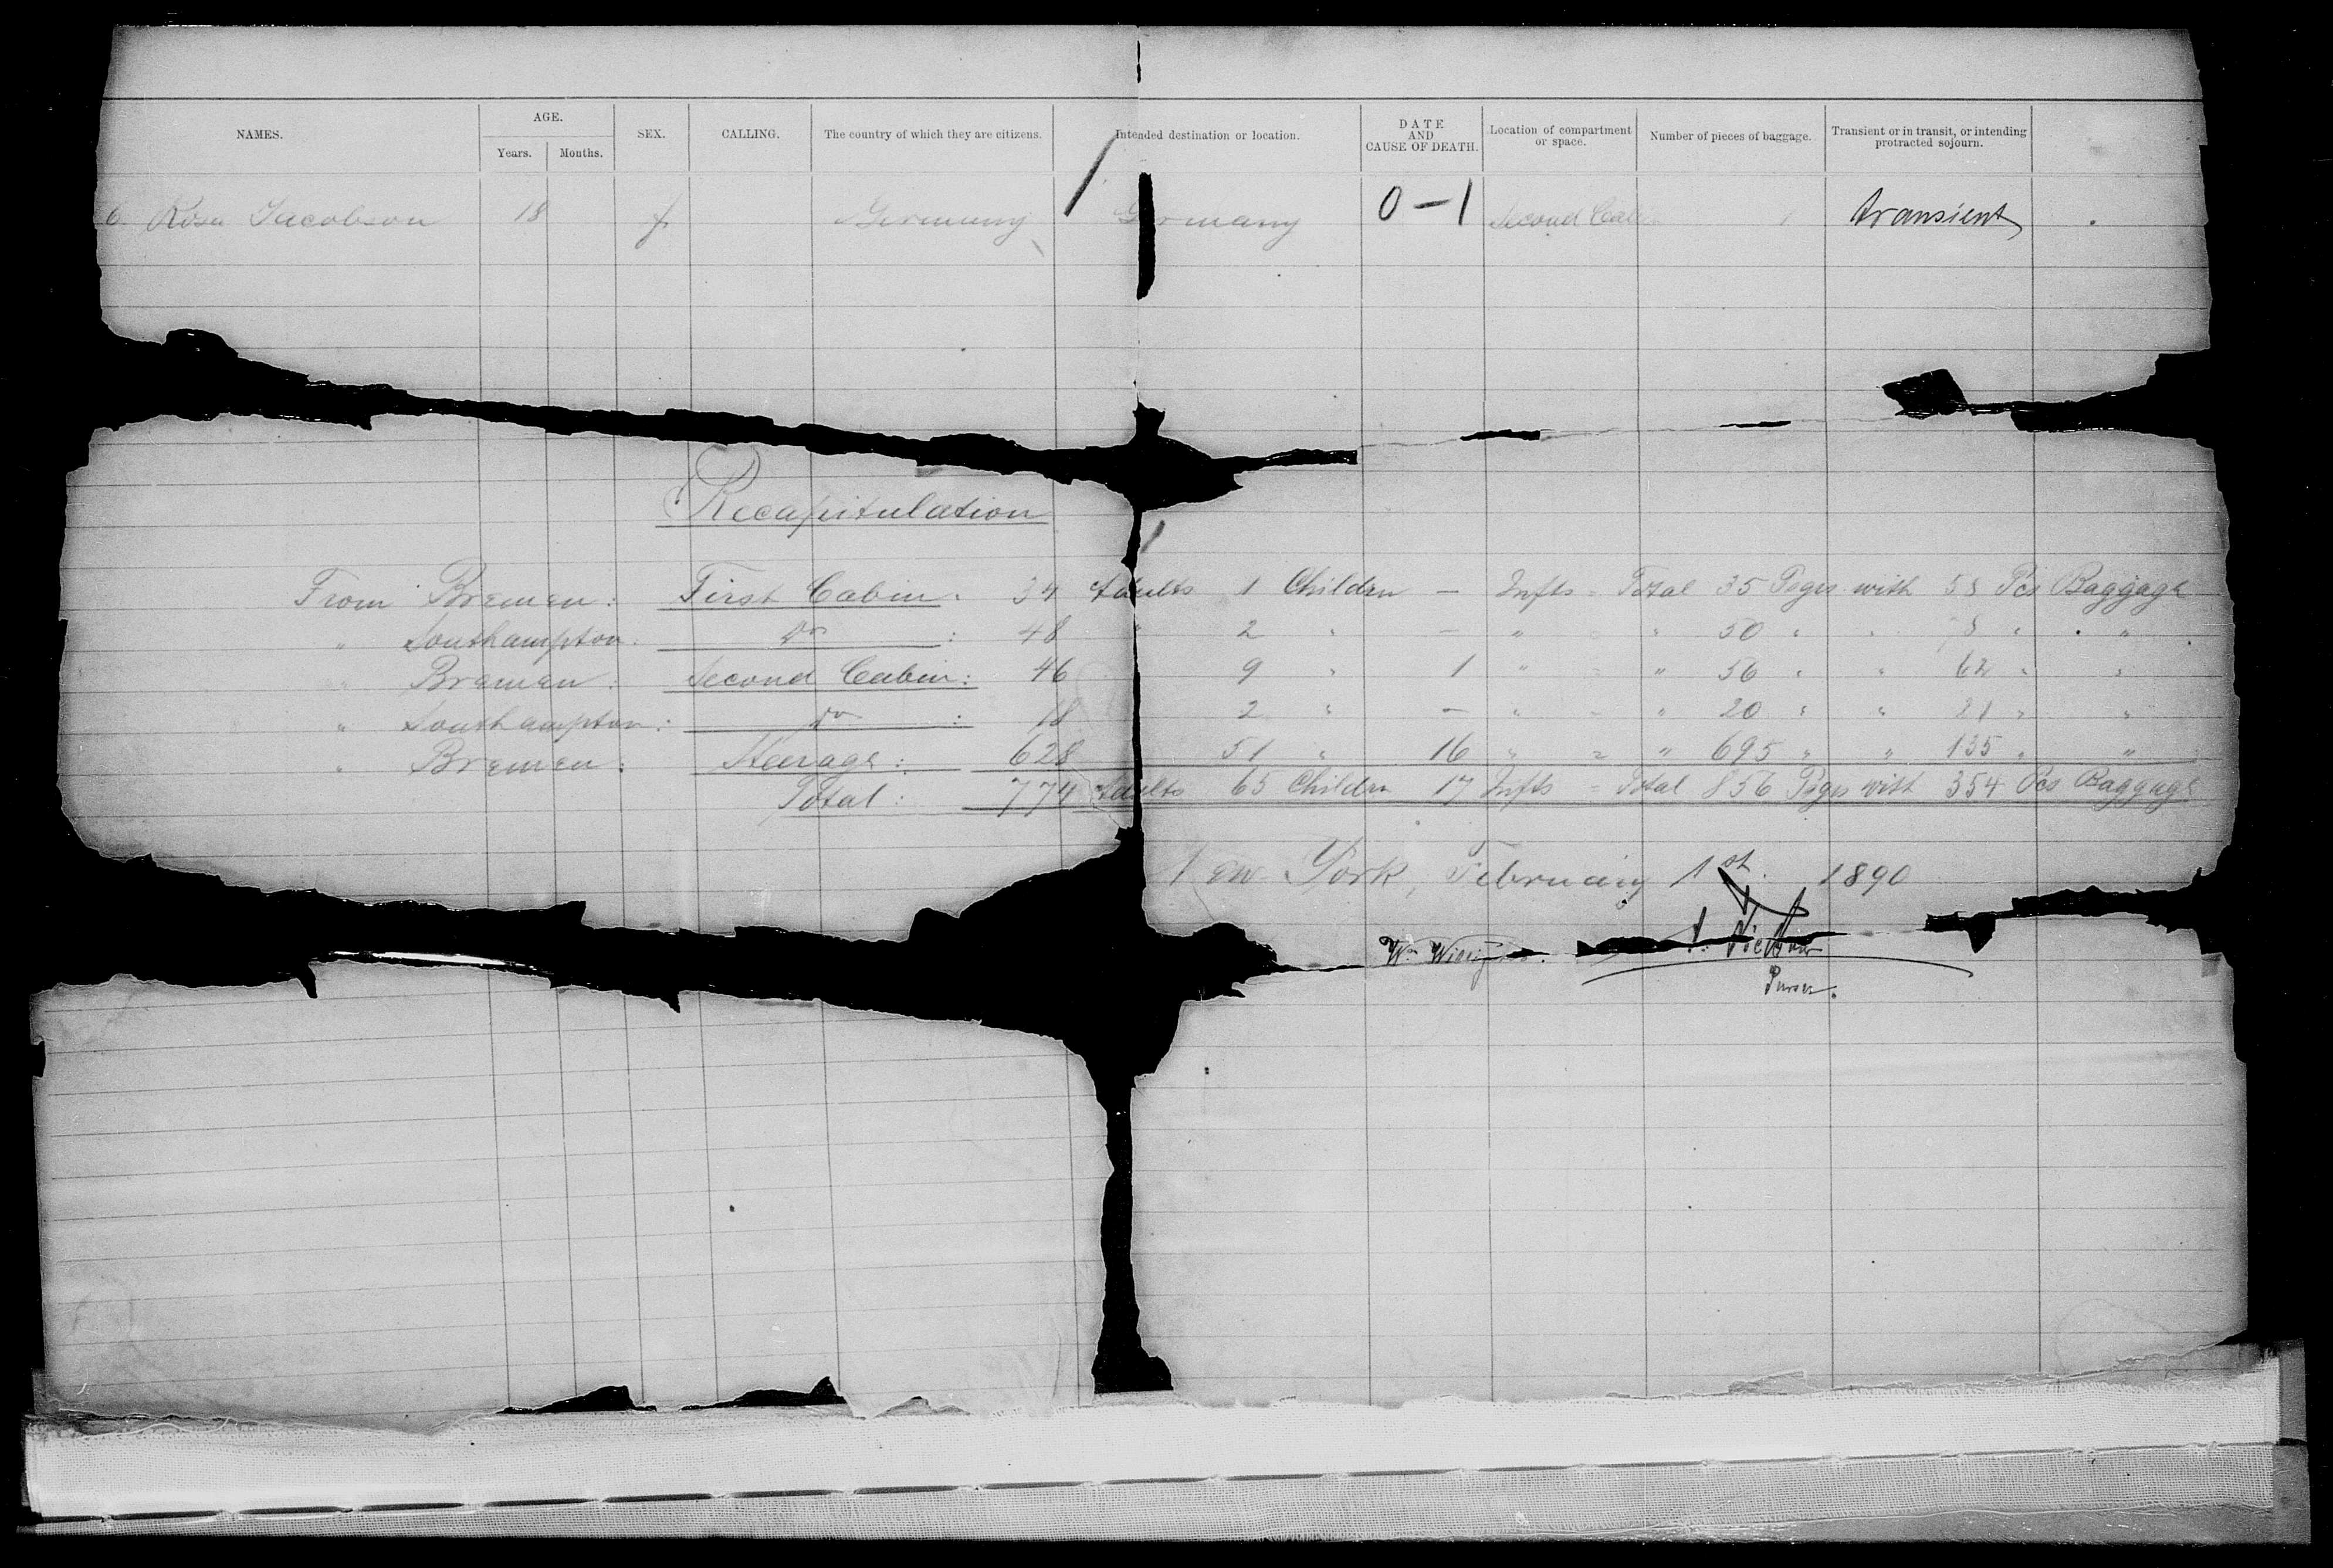 NAMES. AGE. Years. Months. SEX. CALLING. The country of which they are citizens. Intended destination or location. DATE AND CAUSE OF DEATH. Location of compartment or space. Number of pieces of baggage. Transient or in transit, or intending protracted sojourn.
6 Rosa Jacobson 18 f Germany / Germany 0-1 Second Cabin 1 transient
Recapitulation
From Bremen: First Cabin: 34 Adults 1 Children — Infts = Total 35 Psgrs with 58 Pcs Baggage
" Southampton: do : 48 2 " — " = " 50 " " 8 " "
" Bremen: Second Cabin: 46 9 " 1 " = " 56 " " 62 " "
" Southampton: do : 18 2 " — " = " 20 " " 21 " "
" Bremen: Steerage: 628 51 " 16 " = " 695 " " "
Total: 774 Adults 65 Childrn 17 Infts = Total 856 Psgrs with 354 Pcs Baggage
New York, February 1st. 1890
Wm
Purser.